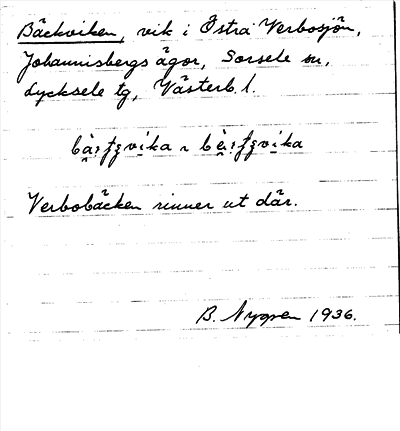 Bäckviken, vik i Östra Verbosjön,
Johannisbergs ägor, Sorsele sn,
Lycksele tg, Västerb. l.
Verbobäcken rinner ut där.
B. Nygren 1936.